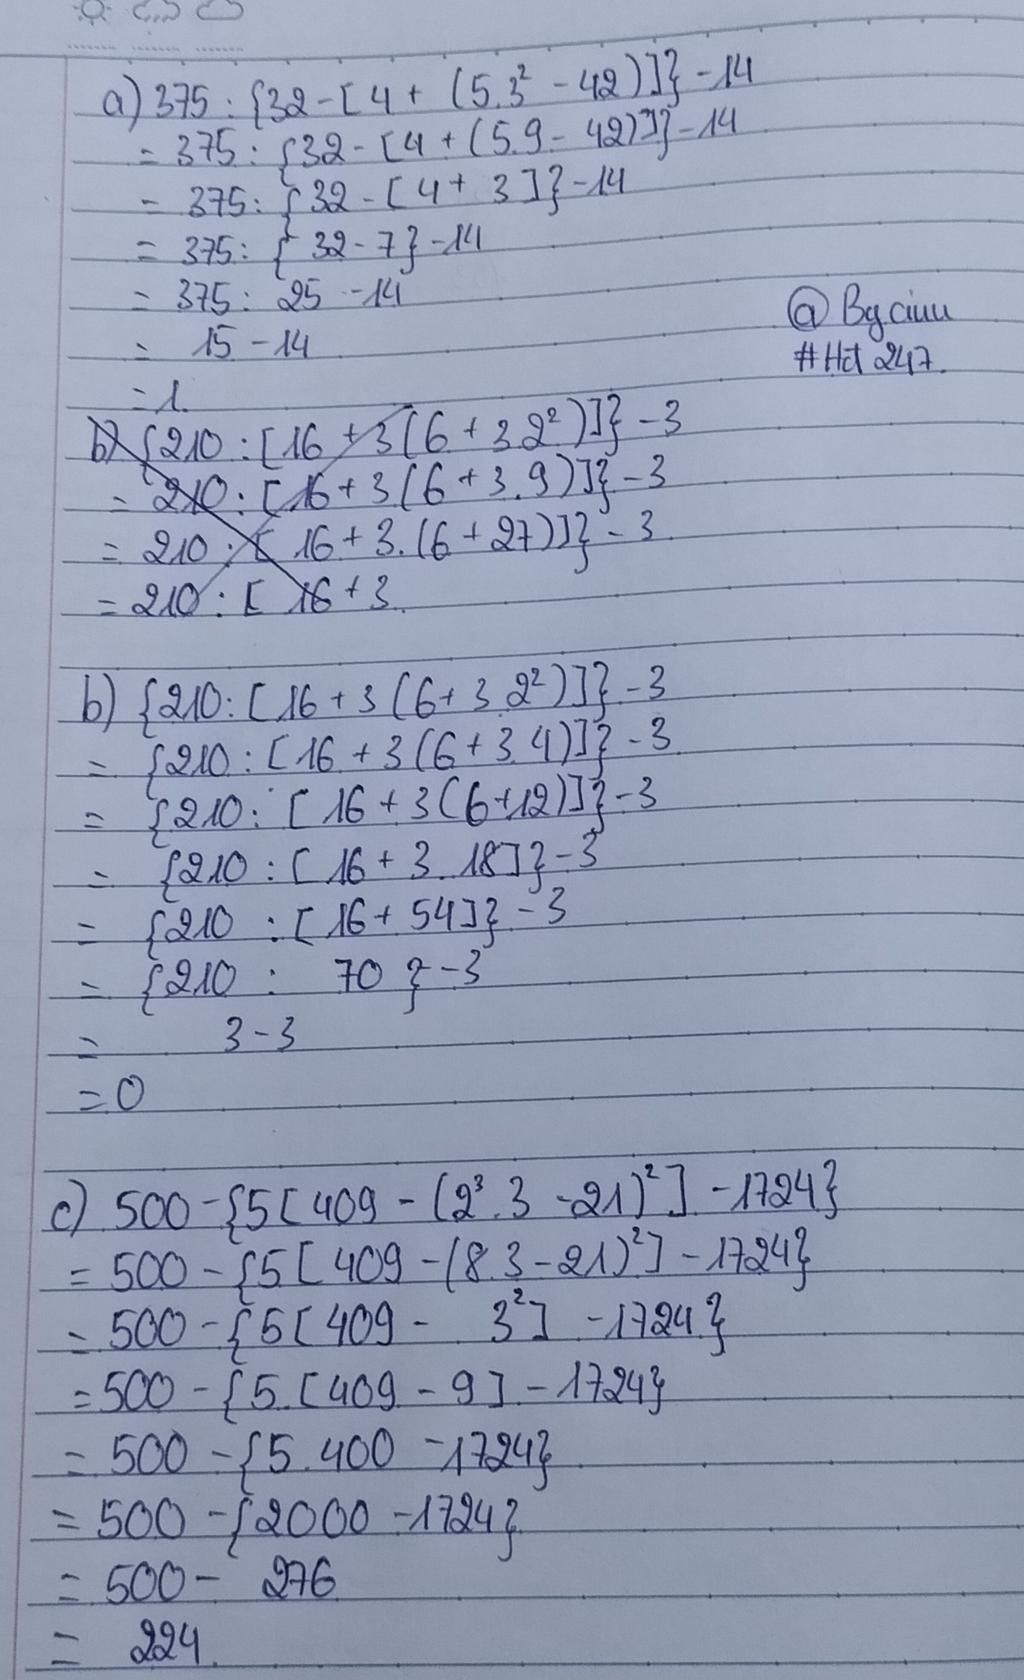 a) 375 : {32 - [4 + (5.3² - 42)]} - 14
= 375 : {32 - [4 + (5.9 - 42)]} - 14
= 375 : {32 - [4 + 3]} - 14
= 375 : {32 - 7} - 14
= 375 : 25 - 14
= 15 - 14
= 1.
@ By ciuu
#Hd 247.
b) {210 : [16 + 3(6 + 3.2²)]} - 3
= 210 : [16 + 3(6 + 3.9)]} - 3
= 210 : [16 + 3.(6 + 27)]} - 3
= 210 : [16 + 3.
b) {210 : [16 + 3(6 + 3.2²)]} - 3
= {210 : [16 + 3(6 + 3.4)]} - 3
= {210 : [16 + 3(6 + 12)]} - 3
= {210 : [16 + 3.18]} - 3
= {210 : [16 + 54]} - 3
= {210 : 70} - 3
= 3 - 3
= 0
c) 500 - {5[409 - (2³.3 - 21)²] - 1724}
= 500 - {5[409 - (8.3 - 21)²] - 1724}
= 500 - {5[409 - 3²] - 1724}
= 500 - {5.[409 - 9] - 1724}
= 500 - {5.400 - 1724}
= 500 - {2000 - 1724}
= 500 - 276
= 224.